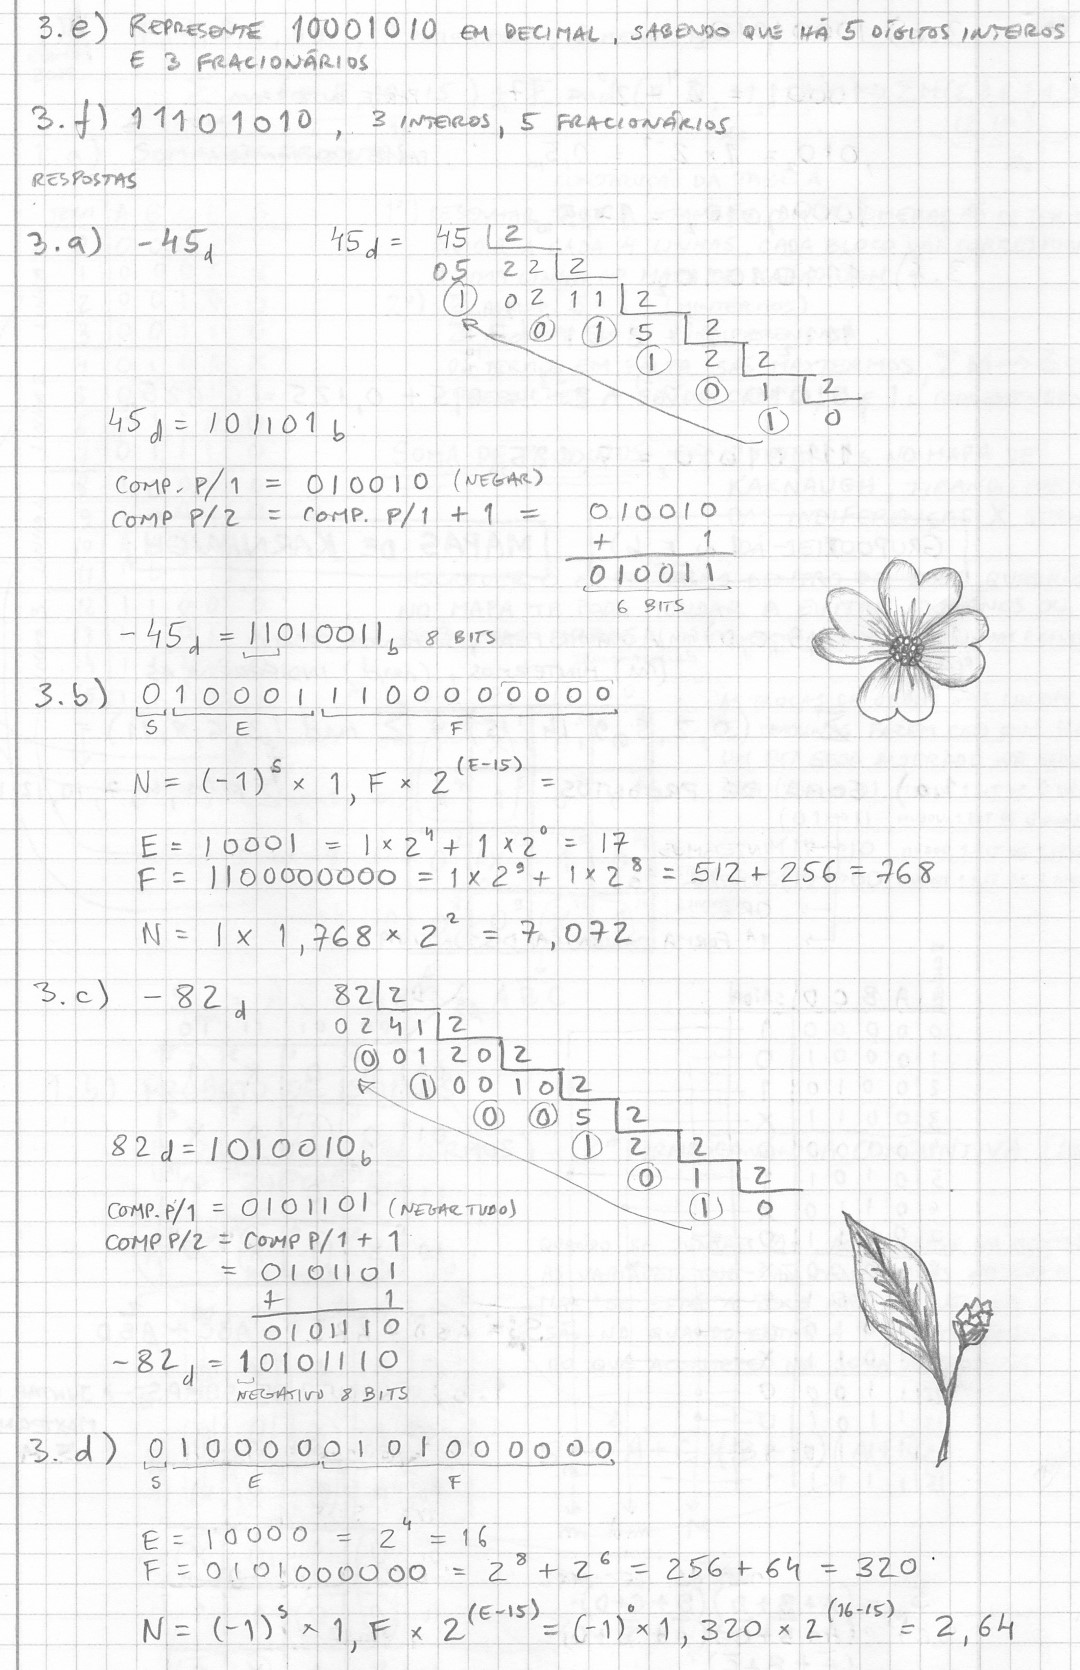 3.e) REPRESENTE 10001010 EM DECIMAL, SABENDO QUE HÁ 5 DÍGITOS INTEIROS
E 3 FRACIONÁRIOS
3.f) 11101010, 3 INTEIROS, 5 FRACIONÁRIOS
RESPOSTAS
3.a) -45d 45d = 45 | 2
05 22 | 2
1 02 11 | 2
0 1 5 | 2
1 2 | 2
0 1 | 2
1 0
45d = 101101b
COMP. P/1 = 010010 (NEGAR)
COMP P/2 = COMP. P/1 + 1 = 010010
+ 1
010011
6 BITS
-45d = 11010011b 8 BITS
3.b) 0100011100000000
S E F
N = (-1)^S × 1,F × 2^(E-15) =
E = 10001 = 1×2^4 + 1×2^0 = 17
F = 1100000000 = 1×2^9 + 1×2^8 = 512 + 256 = 768
N = 1 × 1,768 × 2^2 = 7,072
3.c) -82d 82 | 2
02 41 | 2
0 01 20 | 2
1 00 10 | 2
0 0 5 | 2
1 2 | 2
0 1 | 2
1 0
82d = 1010010b
COMP. P/1 = 0101101 (NEGAR TUDO)
COMP P/2 = COMP P/1 + 1
= 0101101
+ 1
0101110
-82d = 10101110
NEGATIVO 8 BITS
3.d) 0100000101000000
S E F
E = 10000 = 2^4 = 16
F = 0101000000 = 2^8 + 2^6 = 256 + 64 = 320
N = (-1)^S × 1,F × 2^(E-15) = (-1)^0 × 1,320 × 2^(16-15) = 2,64